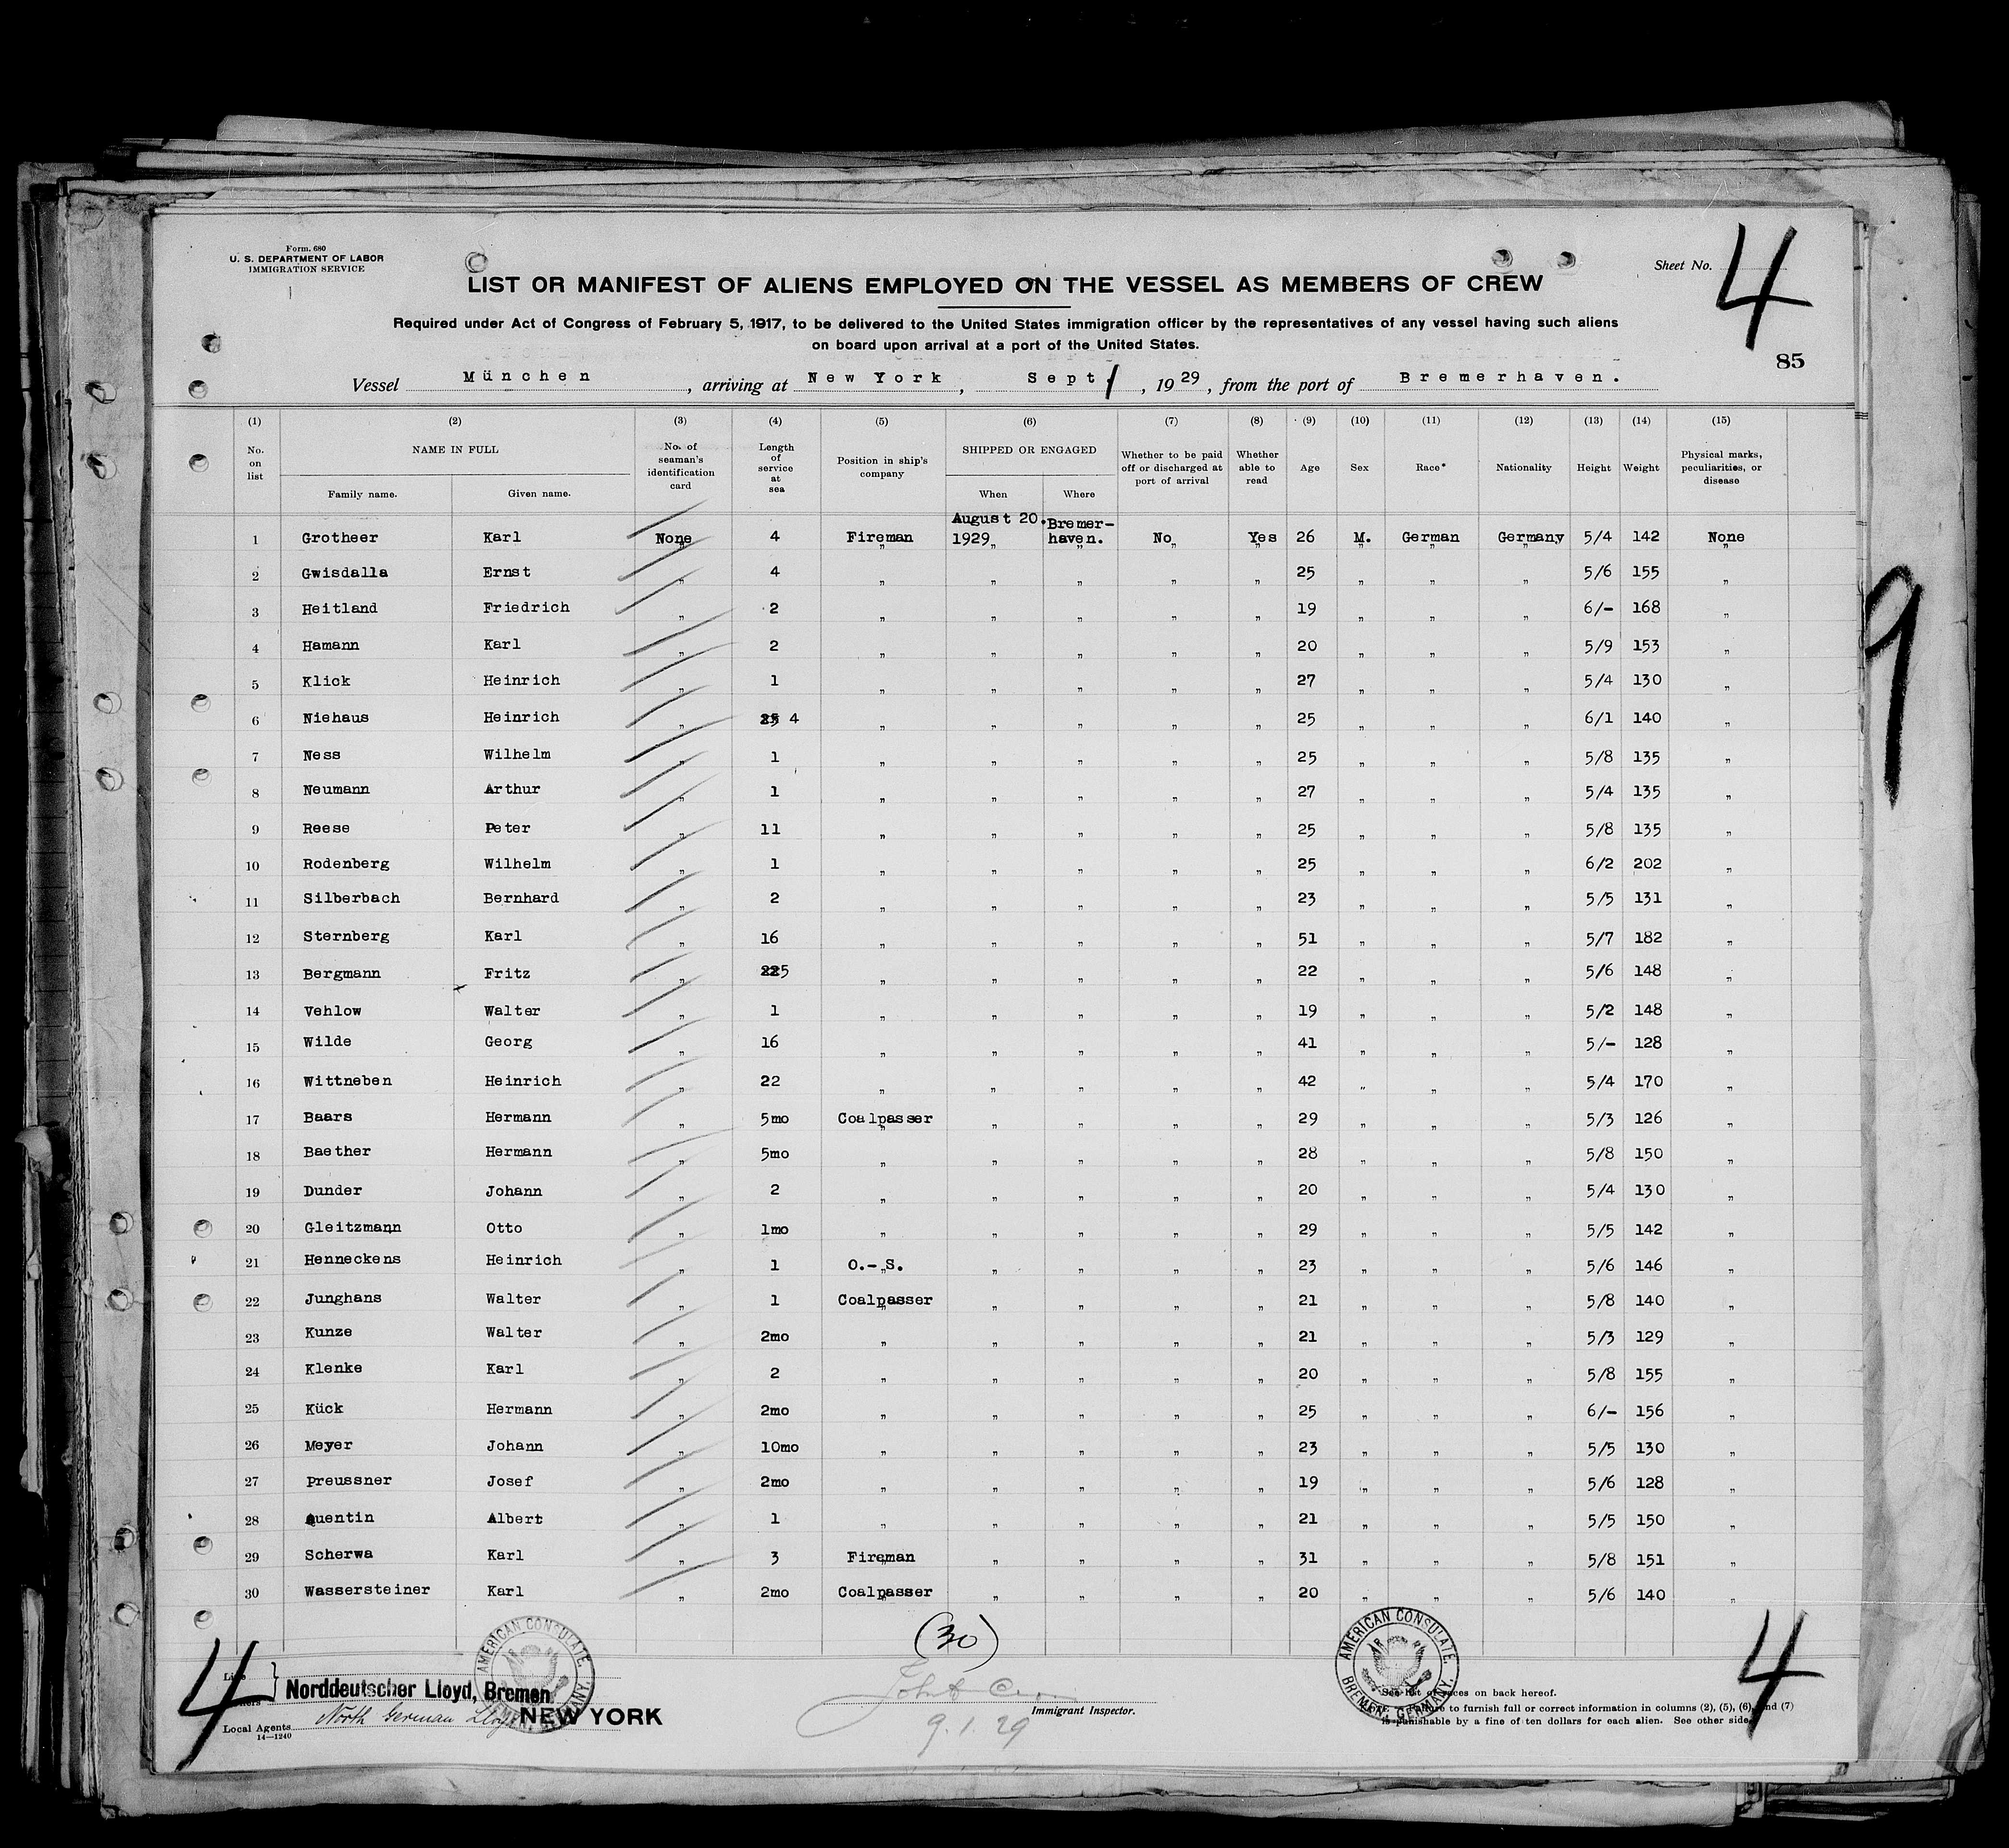 Form. 680
U. S. DEPARTMENT OF LABOR
IMMIGRATION SERVICE
Sheet No. 4
LIST OR MANIFEST OF ALIENS EMPLOYED ON THE VESSEL AS MEMBERS OF CREW
Required under Act of Congress of February 5, 1917, to be delivered to the United States immigration officer by the representatives of any vessel having such aliens
on board upon arrival at a port of the United States.
85
Vessel München, arriving at New York, Sept 1, 1929, from the port of Bremerhaven.
(1) (2) (3) (4) (5) (6) (7) (8) (9) (10) (11) (12) (13) (14) (15)
No. on list NAME IN FULL Family name. Given name. No. of seaman's identification card Length of service at sea Position in ship's company SHIPPED OR ENGAGED When Where Whether to be paid off or discharged at port of arrival Whether able to read Age Sex Race* Nationality Height Weight Physical marks, peculiarities, or disease
1 Grotheer Karl None 4 Fireman August 20. 1929 Bremer-haven. No Yes 26 M. German Germany 5/4 142 None
2 Gwisdalla Ernst " 4 " " " " " 25 " " " 5/6 155 "
3 Heitland Friedrich " 2 " " " " " 19 " " " 6/- 168 "
4 Hamann Karl " 2 " " " " " 20 " " " 5/9 153 "
5 Klick Heinrich " 1 " " " " " 27 " " " 5/4 130 "
6 Niehaus Heinrich " 4 " " " " " 25 " " " 6/1 140 "
7 Ness Wilhelm " 1 " " " " " 25 " " " 5/8 135 "
8 Neumann Arthur " 1 " " " " " 27 " " " 5/4 135 "
9 Reese Peter " 11 " " " " " 25 " " " 5/8 135 "
10 Rodenberg Wilhelm " 1 " " " " " 25 " " " 6/2 202 "
11 Silberbach Bernhard " 2 " " " " " 23 " " " 5/5 131 "
12 Sternberg Karl " 16 " " " " " 51 " " " 5/7 182 "
13 Bergmann Fritz " 5 " " " " " 22 " " " 5/6 148 "
14 Vehlow Walter " 1 " " " " " 19 " " " 5/2 148 "
15 Wilde Georg " 16 " " " " " 41 " " " 5/- 128 "
16 Wittneben Heinrich " 22 " " " " " 42 " " " 5/4 170 "
17 Baars Hermann " 5mo Coalpasser " " " " 29 " " " 5/3 126 "
18 Baether Hermann " 5mo " " " " " 28 " " " 5/8 150 "
19 Dunder Johann " 2 " " " " " 20 " " " 5/4 130 "
20 Gleitzmann Otto " 1mo " " " " " 29 " " " 5/5 142 "
21 Henneckens Heinrich " 1 O.-S. " " " " 23 " " " 5/6 146 "
22 Junghans Walter " 1 Coalpasser " " " " 21 " " " 5/8 140 "
23 Kunze Walter " 2mo " " " " " 21 " " " 5/3 129 "
24 Klenke Karl " 2 " " " " " 20 " " " 5/8 155 "
25 Kück Hermann " 2mo " " " " " 25 " " " 6/- 156 "
26 Meyer Johann " 10mo " " " " " 23 " " " 5/5 130 "
27 Preussner Josef " 2mo " " " " " 19 " " " 5/6 128 "
28 Quentin Albert " 1 " " " " " 21 " " " 5/5 150 "
29 Scherwa Karl " 3 Fireman " " " " 31 " " " 5/8 151 "
30 Wassersteiner Karl " 2mo Coalpasser " " " " 20 " " " 5/6 140 "
9
(30)
4
Norddeutscher Lloyd, Bremen
Local Agents North German Lloyd NEW YORK
14—1240
AMERICAN CONSULATE. BREMEN, GERMANY.
Immigrant Inspector.
9.1.29
AMERICAN CONSULATE. BREMEN, GERMANY.
4
See list of races on back hereof.
Failure to furnish full or correct information in columns (2), (5), (6), and (7)
is punishable by a fine of ten dollars for each alien. See other side.